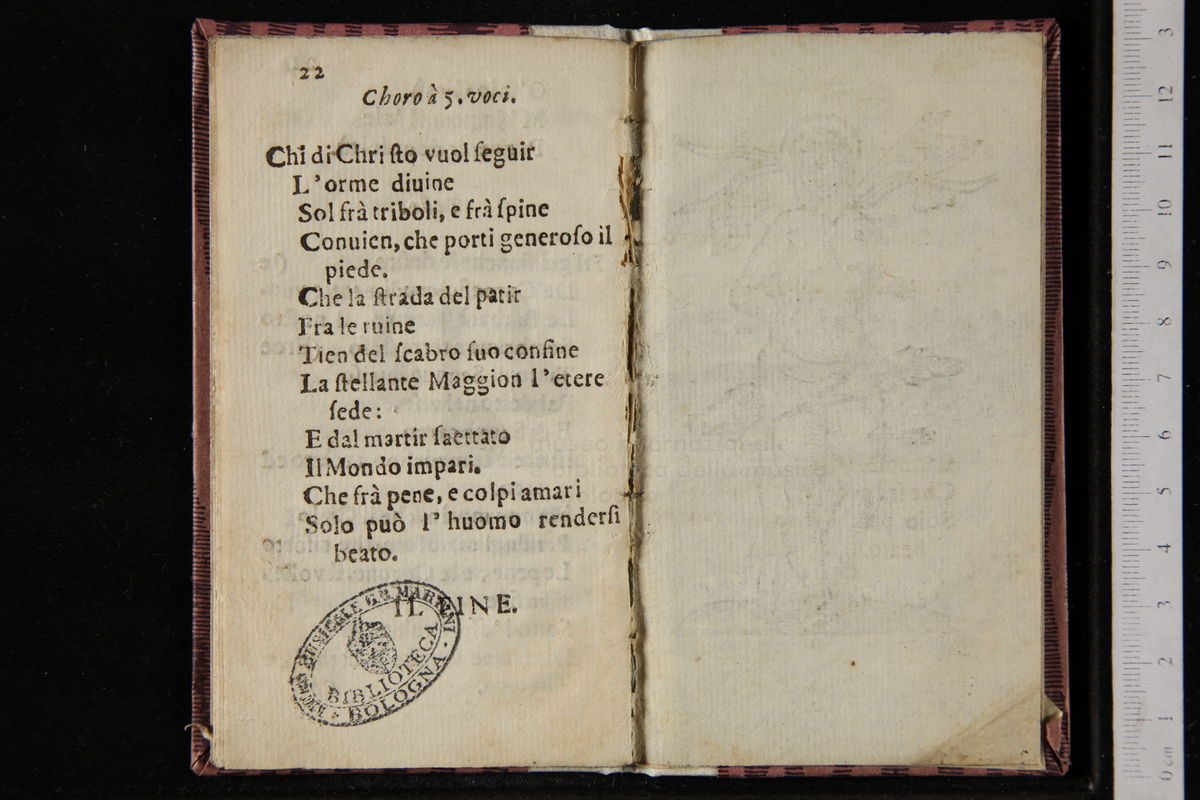 22
Choro à 5. voci.
Chi di Chri ſto vuol ſeguir
L'orme diuine
Sol frà triboli, e frà ſpine
Conuien, che porti generoſo il
piede.
Che la ſtrada del patir
Fra le ruine
Tien del ſcabro ſuo confine
La ſtellante Maggion l'etere
ſede:
E dal martir ſaettato
Il Mondo impari.
Che frà pene, e colpi amari
Solo può l'huomo renderſi
beato.
IL FINE.
MUSICALE G.B. MARTINI
BIBLIOTECA
BOLOGNA
museo internazionale
e biblioteca della musica
0 cm 1 2 3 4 5 6 7 8 9 10 11 12 3